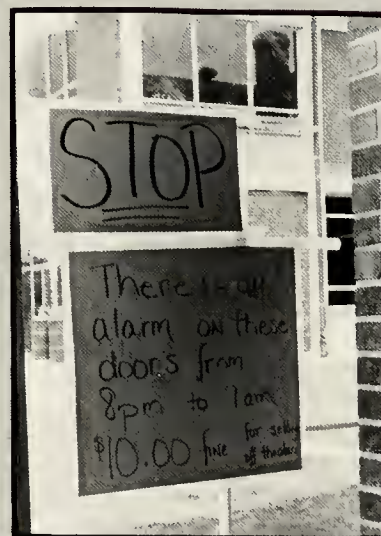 STOP
There is an
alarm on these
doors from
8pm to 7am
$10.00 fine for setting
off the alarm